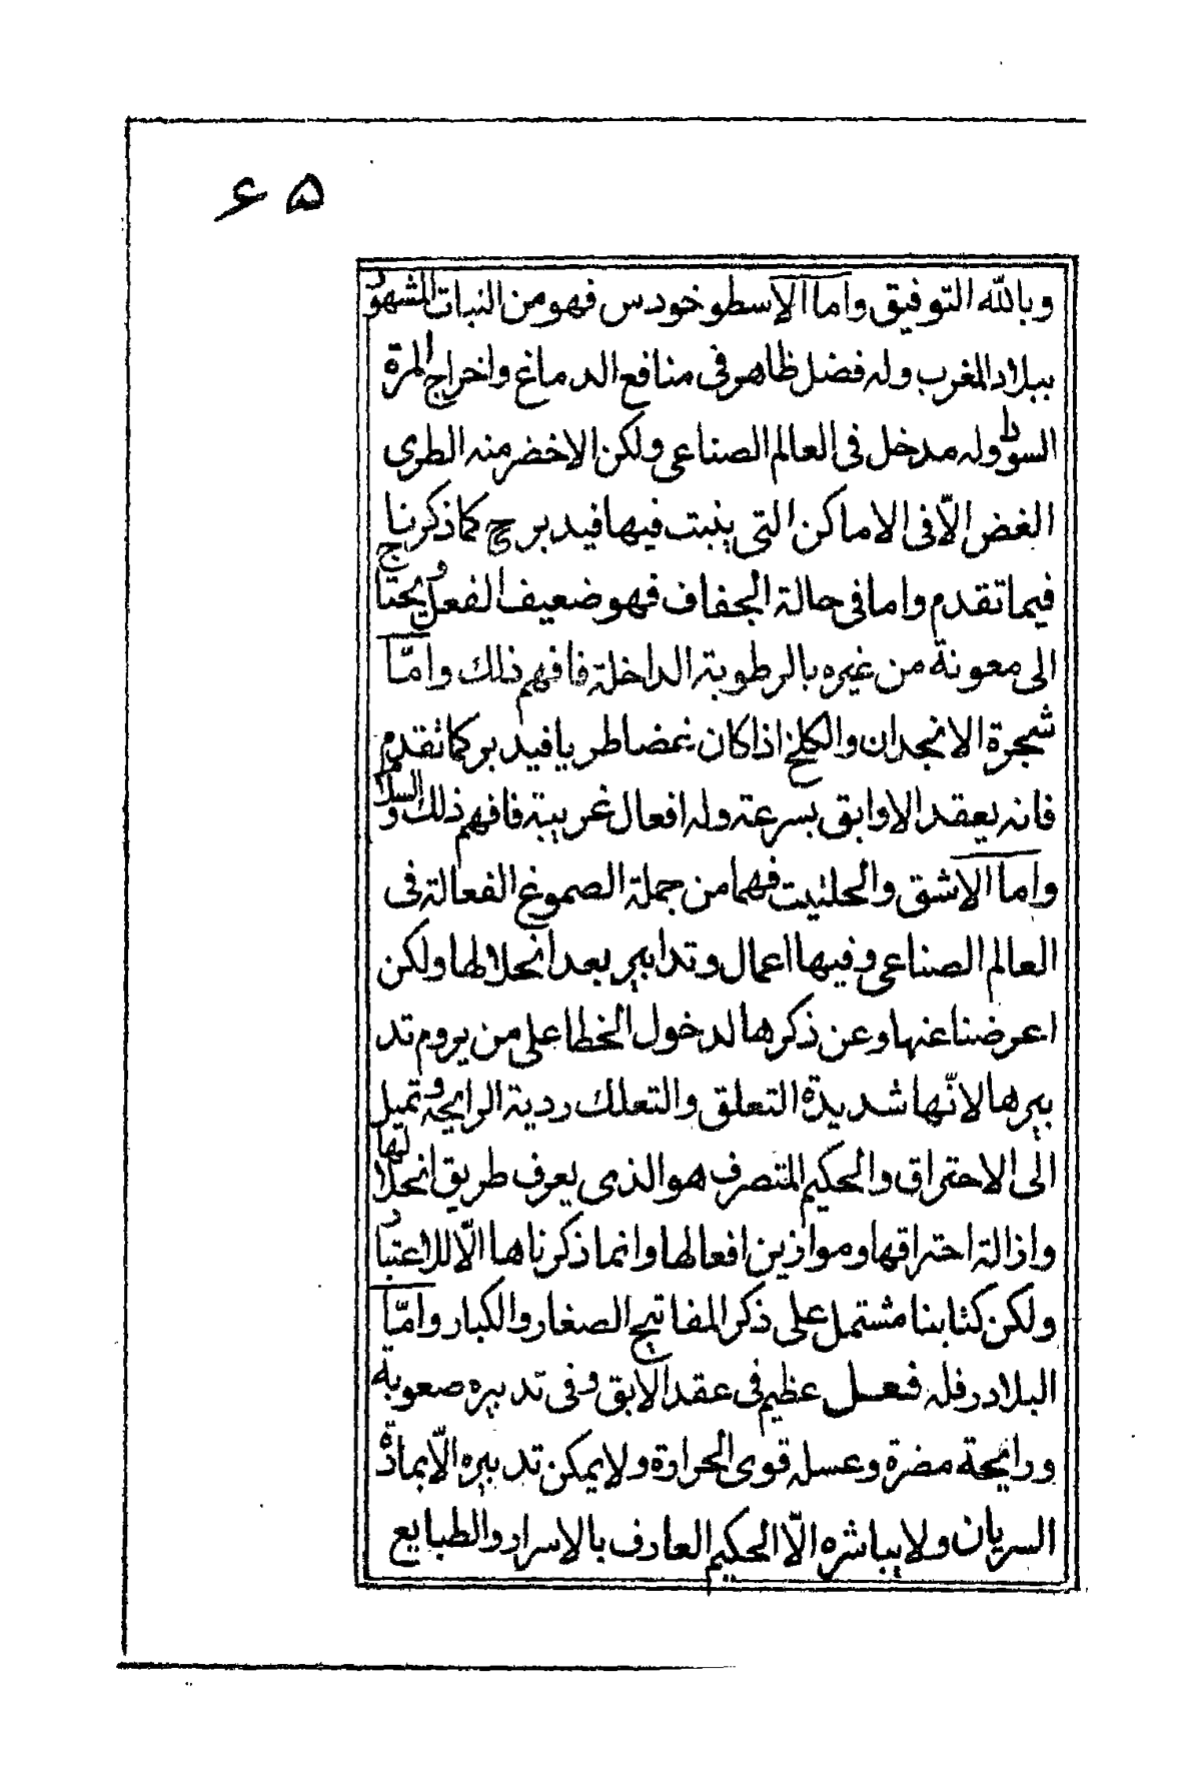 ۶۵
وبالله التوفيق واما الاسطوخودس فهو من النبات المشهور
ببلاد المغرب وله فضل ظاهر فى منافع الدماغ واخراج المرة
السودا وله مدخل فى العالم الصناعى ولكن الاخضر منه الطرى
الغض الّا فى الاماكن التى ينبت فيها فيدبر ح كما ذكرنا
فيما تقدم واما فى حالة الجفاف فهو ضعيف الفعل ويحتاج
الى معونة من غيره بالرطوبة الداخلة فافهم ذلك وامّا
شجرة الانجدان والكلخ اذا كان غضا طريا فيدبر كما تقدم
فانه يعقد الاوابق بسرعة وله افعال غريبة فافهم ذلك والسلام
واما الاشق والحلتيت فهما من جملة الصموغ الفعالة فى
العالم الصناعى وفيها اعمال وتدابير بعد انحلالها ولكن
اعرضنا عنها وعن ذكرها لدخول الخطا على من يروم تد
بيرها لانّها شديدة التعلق والتعلك ردية الرايحة وتميل
الى الاحتراق والحكيم المتصرف هو الذى يعرف طريق انحلالها
وازالة احتراقها وموازين افعالها وانما ذكرناها الّا للاعتبار
ولكن كتابنا مشتمل على ذكر المفاتيح الصغار والكبار وامّا
البلادر فله فعل عظيم فى عقد الابق وفى تدبيره صعوبة
ورايحة مضرة وعسله قوى الحرارة ولا يمكن تدبيره الّا بمادّة
السريان ولا يباشره الّا الحكيم العارف بالاسرار والطبايع